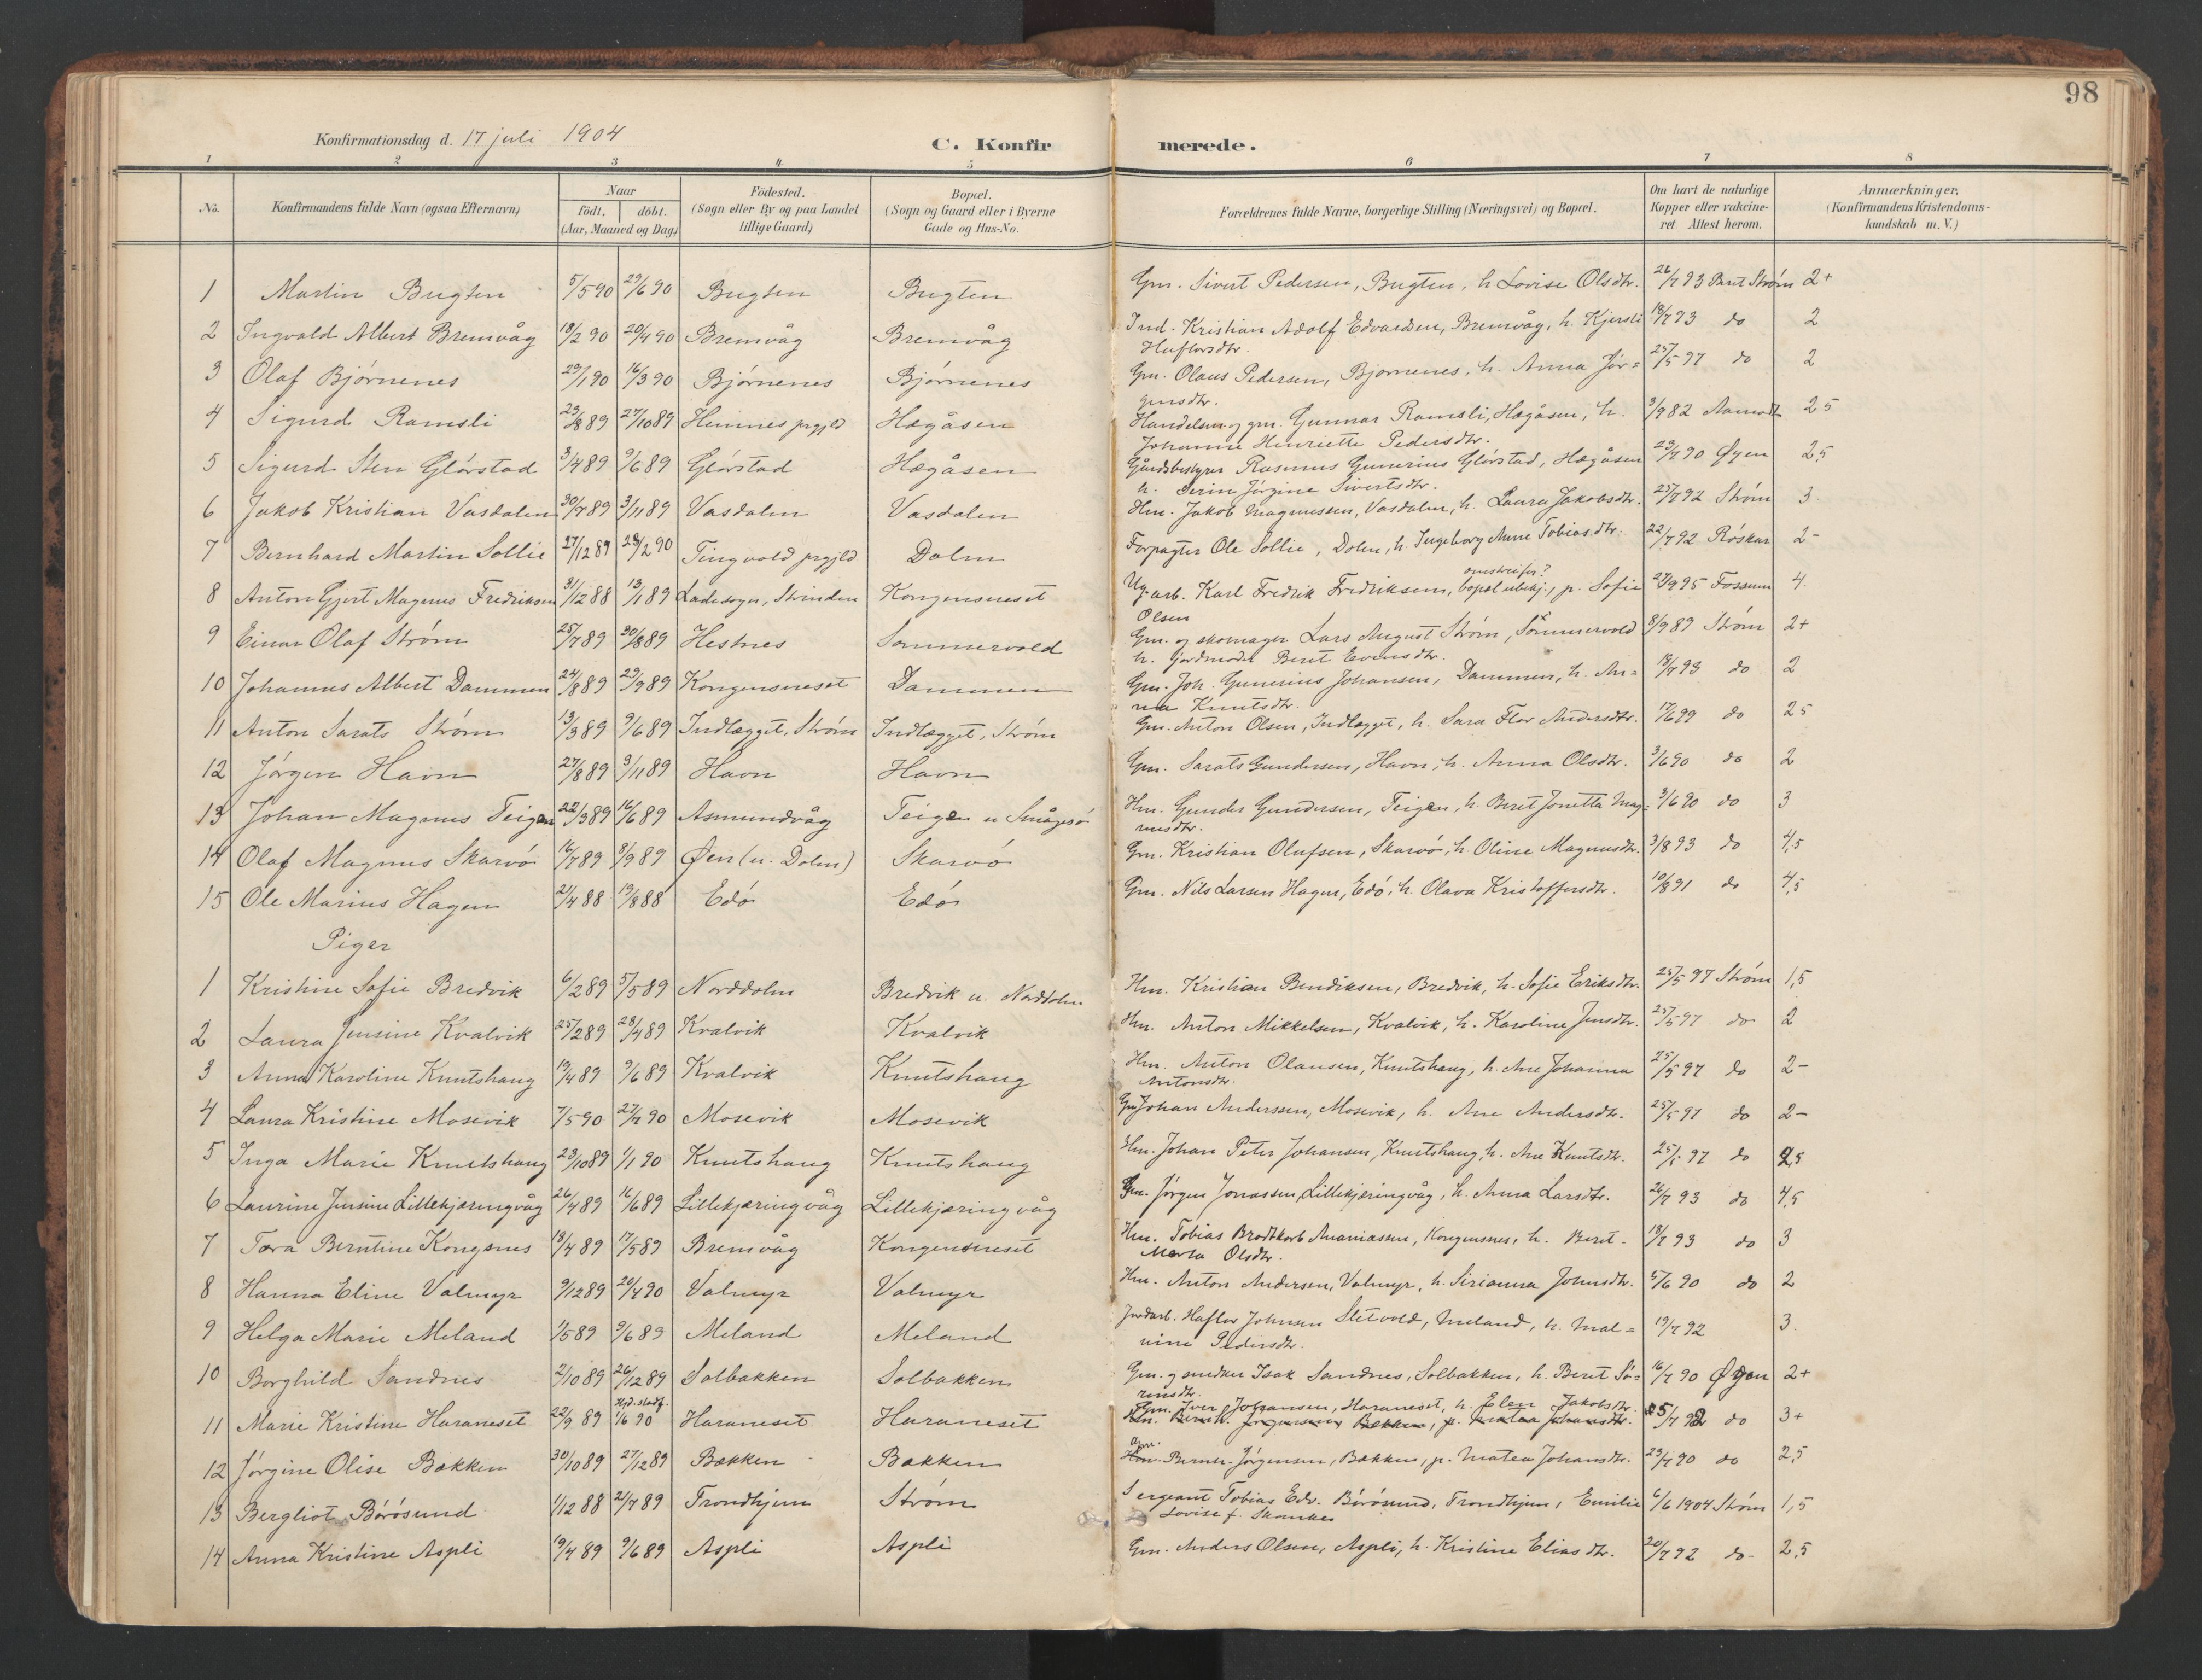 98
Konfirmationsdag d. 17 juli 1904
C. Konfirmerede.
1 2 3 4 5 6 7 8
No. Konfirmandens fulde Navn (ogsaa Efternavn) Naar født. døbt. (Aar, Maaned og Dag) Födested. (Sogn eller By og paa Landet tillige Gaard) Bopæl. (Sogn og Gaard eller i Byerne Gade og Hus-No. Forældrenes fulde Navne, borgerlige Stilling (Næringsvei) og Bopæl. Om havt de naturlige Kopper eller vakcineret. Attest herom. Anmærkninger, (Konfirmandens Kristendomskundskab m. V.)
1 Martin Bugten 5/5 90 29/6 90 Bugten Bugten Gm. Sivert Pedersen, Bugten, h. Lovise Olsdtr. 26/7 93 Strøm 2+
2 Ingvald Albert Bremvåg 18/2 90 20/4 90 Bremvåg Bremvåg Ind. Kristian Adolf Edvardsen, Bremvåg, h. Kjersti 18/7 93 do 2
Haflorsdtr.
3 Olaf Bjørnenes 29/1 90 16/3 90 Bjørnenes Bjørnenes Gm. Olaus Pedersen, Bjørnenes, h. Anna Jør= 25/5 97 do 2
gensdtr.
4 Sigurd Ramsli 23/8 89 27/10 89 Hemnes prgjld Hægåsen Handelsm. og gm. Gunnar Ramsli, Hægåsen, h. 3/9 82 Aamodt 2,5
Johanne Henriette Pedersdtr.
5 Sigurd Sten Glørstad 3/4 89 9/6 89 Glørstad Hægåsen Gårdsbestyrer Rasmus Gunerius Glørstad, Hægåsen 23/7 90 Øyen 2,5
h. Serine Jørgine Sivertsdtr.
6 Jakob Kristian Vasdalen 30/7 89 3/11 89 Vasdalen Vasdalen Hm. Jakob Magnussen, Vasdalen, h. Laura Jakobsdtr. 25/7 92 Strøm 3
7 Bernhard Martin Sollie 27/12 89 23/2 90 Tingvold prgjld Dolm Forpagter Ole Sollie, Dolm, h. Ingeborg Anne Tobiasdtr. 22/7 92 Røskar 2-
8 Anton Gjert Magnus Fredriksen 31/12 88 13/1 89 Ladesogn, Strinden Kongensneset Ug. arb. Karl Fredrik Fredriksen, bopæl ubekj., omstreifer? p. Sofie 27/9 95 Fossum 4
Olsen
9 Einar Olaf Strøm 25/7 89 30/8 89 Hestnes Sommervold Gm. og skomager Lars August Strøm, Sommervold 8/9 89 Strøm 2+
h. jordmoder Beret Evensdtr.
10 Johannes Albert Dammen 24/8 89 29/9 89 Kongensneset Dammen Gm. Joh. Gunerius Johansen, Dammen, h. An= 18/7 93 do 2
na Knutsdtr.
11 Anton Sarats Strøm 13/3 89 9/6 89 Indlægget, Strøm Indlægget, Strøm Gm. Anton Olsen, Indlægget, h. Sara Flor Andersdtr. 17/6 99 do 2,5
12 Jørgen Havn 27/8 89 3/11 89 Havn Havn Gm. Sarats Gundersen, Havn, h. Anna Olsdtr. 3/6 90 do 2
13 Johan Magnus Teigen 22/3 89 16/6 89 Asmundvåg Teigen u Småge sø Hm. Gunder Gundersen, Teigen, h. Beret Jonetta Mag= 3/6 90 do 3
nusdtr.
14 Olaf Magnus Skarvø 16/7 89 8/9 89 Øen (u. Dolm) Skarvø Gm. Kristian Olufsen, Skarvø, h. Oline Magnusdtr. 3/8 93 do 4,5
15 Ole Marius Hagen 21/4 88 19/8 88 Edø Edø Gm. Nils Larsen Hagen, Edø, h. Olava Kristoffersdtr. 10/8 91 do 4,5
Piger
1 Kristine Sofie Bredvik 6/2 89 5/5 89 Norddolm Bredvik u. Norddolm Hm. Kristian Bendiksen, Bredvik, h. Sofie Eriksdtr. 25/5 97 Strøm 1,5
2 Laura Jensine Kvalvik 25/2 89 28/4 89 Kvalvik Kvalvik Hm. Anton Mikkelsen, Kvalvik, h. Karoline Jensdtr. 25/5 97 do 2
3 Anna Karoline Knutshaug 19/4 89 9/6 89 Kvalvik Knutshaug Hm. Anton Olausen, Knutshaug, h. Ane Johanna 25/5 97 do 2-
Antonsdtr.
4 Laura Kristine Mosevik 7/5 90 27/7 90 Mosevik Mosevik Gm Johan Anderssen, Mosevik, h. Ane Andersdtr. 25/5 97 do 2-
5 Inga Marie Knutshaug 23/10 89 1/1 90 Knutshaug Knutshaug Hm. Johan Peter Johansen, Knutshaug, h. Ane Knutsdtr. 25/5 97 do 2,5
6 Laurine Jensine Lillekjæringvåg 26/4 89 16/6 89 Lillekjæringvåg Lillekjæringvåg Gm. Jørgen Jonassen, Lillekjæringvåg, h. Anna Larsdtr. 26/7 93 do 4,5
7 Tora Berntine Kongsnes 18/4 89 17/5 89 Bremvåg Kongensneset Hm. Tobias Brodtkorb Ananiassen, Kongensnes, h. Beret- 18/7 93 do 3
Marta Olsdtr.
8 Hanna Eline Valmyr 9/12 89 20/4 90 Valmyr Valmyr Hm. Anton Andersen, Valmyr, h. Sirianna Johnsdtr. 5/6 90 do 2
9 Helga Marie Meland 1/5 89 9/6 89 Meland Meland Jordarb. Haflor Johnsen Sletvold, Meland, h. Mal= 19/7 92 3.
vine Pedersdtr.
10 Borghild Sandnes 2/10 89 26/12 89 Solbakken Solbakken Gm. og smedker Isak Sandnes, Solbakken, h. Beret Sø- 16/7 90 Øyen 2+
rensdtr.
11 Marie Kristine Haraneset 22/9 89 Hjd. stadf. 1/6 90 Haraneset Haraneset Gm. Iver Johansen, Haraneset, h. Elen Jakobsdtr. 25/7 92 do 3+
Hm. Bernh. Jørgensen, Bakken, p. Matea Johansdtr.
12 Jørgine Olise Bakken 30/10 89 27/12 89 Bakken Bakken Gm. Hm. Bernh. Jørgensen, Bakken, p. Matea Johansdtr. 23/7 90 do 2,5
13 Bergliot Börösund 1/12 88 21/7 89 Trondhjem Strøm Sergeant Tobias Edv. Börösund, Trondhjem, Emilie 6/6 1904 Strøm 1,5
Lovise f. Skanke
14 Anna Kristine Aspli 19/4 89 9/6 89 Aspli Aspli Gm. Anders Olsen, Aspli, h. Kristine Eliasdtr. 20/7 92 do- 2,5